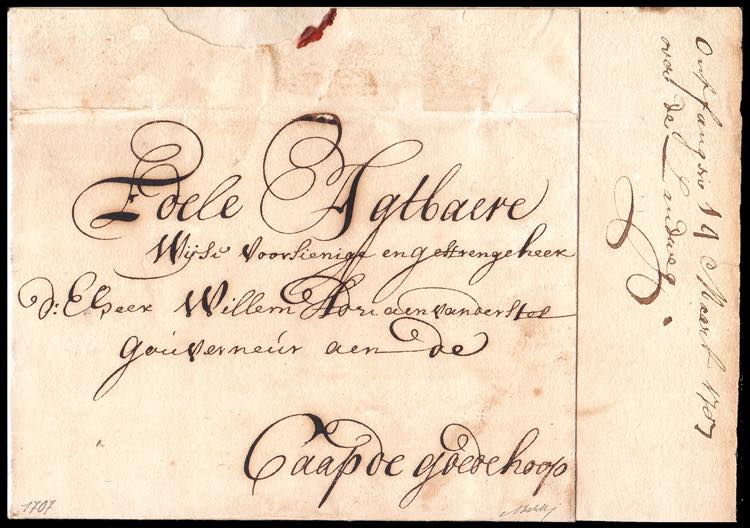 Edele Agtbaere
Wijse voorsienige en gestrenge heer
d: E heer Willem Adriaen vander Stel
Gouverneur aen de
Caap de goede hoop
1707
Ontfangen 14 Maart 1707
over de Landweg